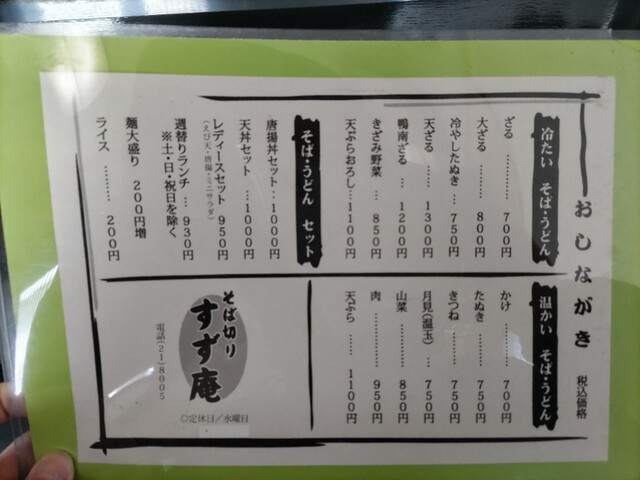 おしながき 税込価格
冷たい そば・うどん
ざる ……… 700円
大ざる ……… 800円
冷やしたぬき … 750円
天ざる …… 1300円
鴨南ざる … 1200円
きざみ野菜 … 850円
天ぷらおろし…1100円
そば・うどん セット
唐揚丼セット‥1000円
天丼セット …1000円
レディースセット 950円
(えび天・唐揚・ミニサラダ)
週替りランチ … 930円
※土・日・祝日を除く
麵大盛り 200円増
ライス ……… 200円
温かい そば・うどん
かけ ……… 700円
たぬき ……… 750円
きつね ……… 750円
月見(温玉) … 750円
山菜 ……… 850円
肉 ……… 950円
天ぷら …… 1100円
そば切り
すず庵
電話(21)8005
◎定休日／水曜日